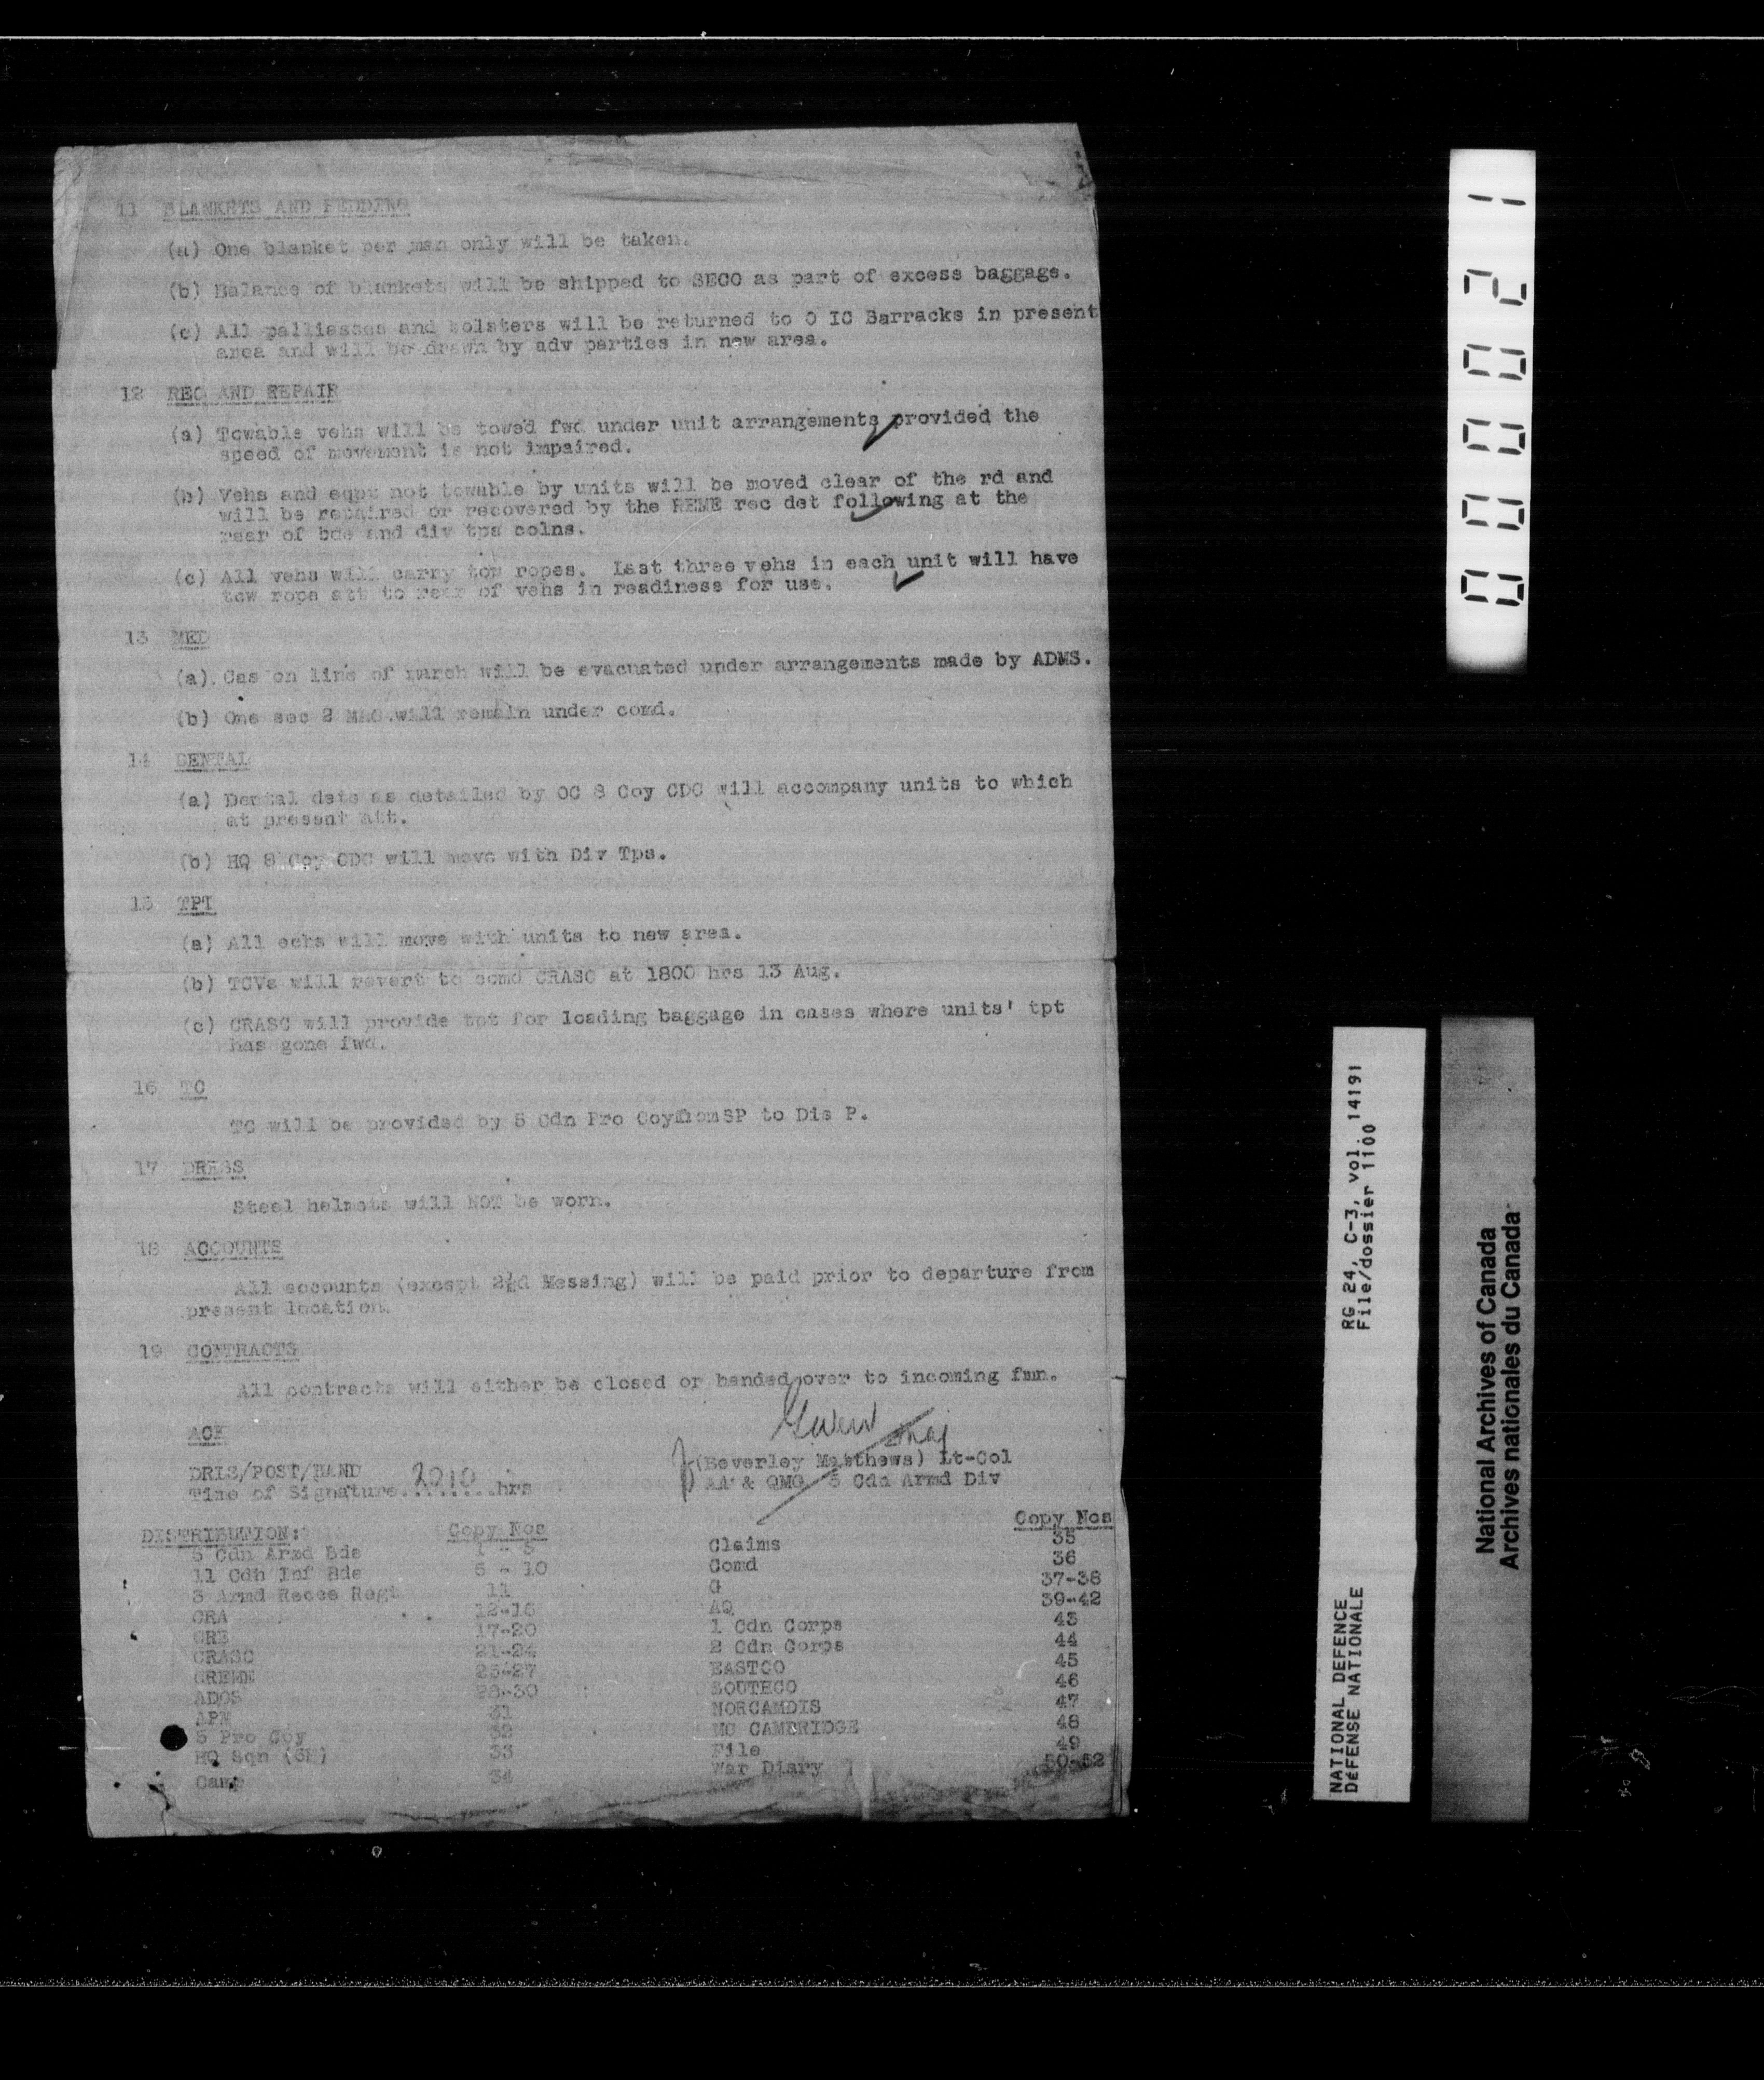 11 BLANKETS AND BEDDING
(a) One blanket per man only will be taken.
(b) Balance of blankets will be shipped to SECO as part of excess baggage.
(c) All palliasses and bolsters will be returned to O IC Barracks in present
area and will be drawn by adv parties in new area.
12 REC AND REPAIR
(a) Towable vehs will be towed fwd under unit arrangements provided the
speed of movement is not impaired.
(b) Vehs and eqpt not towable by units will be moved clear of the rd and
will be repaired or recovered by the REME rec det following at the
rear of bde and div tps colns.
(c) All vehs will carry tow ropes. Last three vehs in each unit will have
tow rope att to rear of vehs in readiness for use.
13 MED
(a). Cas on line of march will be evacuated under arrangements made by ADMS.
(b) One sec 2 MAC will remain under comd.
14 DENTAL
(a) Dental dets as detailed by OC 8 Coy CDC will accompany units to which
at present att.
(b) HQ 8 Coy CDC will move with Div Tps.
15 TPT
(a) All echs will move with units to new area.
(b) TCVs will revert to comd CRASC at 1800 hrs 13 Aug.
(c) CRASC will provide tpt for loading baggage in cases where units' tpt
has gone fwd.
16 TC
TC will be provided by 5 Cdn Pro Coy from SP to Dis P.
17 DRESS
Steel helmets will NOT be worn.
18 ACCOUNTS
All accounts (except 2½d Messing) will be paid prior to departure from
present location.
19 CONTRACTS
All contracts will either be closed or handed over to incoming fmn.
ACK
Maj
(Beverley Matthews) Lt-Col
AA & QMG 5 Cdn Armd Div
DRLS/POST/HAND
Time of Signature 2010 hrs
DISTRIBUTION: Copy Nos Copy Nos
5 Cdn Armd Bde 1 - 5 Claims 35
11 Cdn Inf Bde 6 - 10 Comd 36
3 Armd Recce Regt 11 G 37-38
CRA 12-16 AQ 39-42
CRE 17-20 1 Cdn Corps 43
CRASC 21-24 2 Cdn Corps 44
CREME 25-27 EASTCO 45
ADOS 28-30 SOUTHCO 46
APM 31 NORCAMDIS 47
5 Pro Coy 32 MC CAMBRIDGE 48
HQ Sqn (GH) 33 File 49
Camp 34 War Diary 50-52
000021
RG 24, C-3, vol. 14191
File/dossier 1100
NATIONAL DEFENCE
DÉFENSE NATIONALE
National Archives of Canada
Archives nationales du Canada